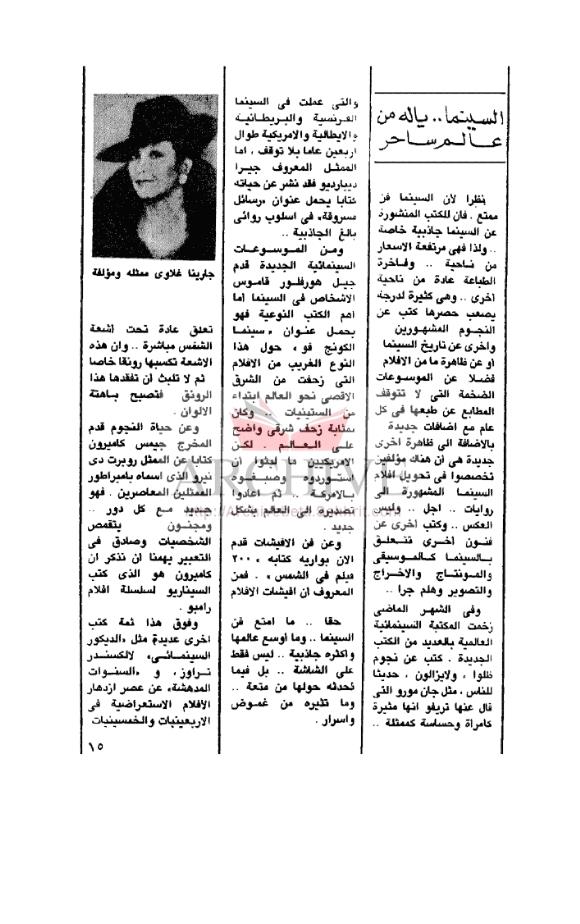 السينما .. ياله من
عالم ساحر
نظرا لأن السينما فن
ممتع . فان للكتب المنشورة
عن السينما جاذبية خاصة
.. ولذا فهى مرتفعة الاسعار
من ناحية .. وفاخرة
الطباعة عادة من ناحية
اخرى .. وهى كثيرة لدرجة
يصعب حصرها كتب عن
النجوم المشهورين
واخرى عن تاريخ السينما
او عن ظاهرة ما من الافلام
فضلا عن الموسوعات
الضخمة التى لا تتوقف
المطابع عن طبعها فى كل
عام مع اضافات جديدة
بالاضافة الى ظاهرة اخرى
جديدة هى أن هناك مؤلفين
تخصصوا فى تحويل افلام
السينما المشهورة الى
روايات .. اجل .. وليس
العكس .. وكتب اخرى عن
فنون اخرى تتعلق
بالسينما كالموسيقى
والمونتاج والاخراج
والتصوير وهلم جرا ..
وفى الشهر الماضى
زخمت المكتبة السينمائية
العالمية بالعديد من الكتب
الجديدة . كتب عن نجوم
ظلوا ، ولايزالون ، حديثا
للناس ، مثل جان مورو التى
قال عنها تريفو انها مثيرة
كامرأة وحساسة كممثلة ..
والتى عملت فى السينما
الفرنسية والبريطانية
والايطالية والامريكية طوال
اربعين عاما بلا توقف ، اما
الممثل المعروف جيرا
ديبارديو فقد نشر عن حياته
كتابا يحمل عنوان «رسائل
مسروقة» فى اسلوب روائى
بالغ الجاذبية ..
ومن الموسوعات
السينمائية الجديدة قدم
جيل هورفلور قاموس
الاشخاص فى السينما اما
اهم الكتب النوعية فهو
يحمل عنوان «سينما
الكونج فو» حول هذا
النوع الغريب من الافلام
التى زحفت من الشرق
الاقصى نحو العالم ابتداء
من الستينيات وكان
بمثابة زحف شرقى واضح
على العالم . لكن
الامريكيين ما لبثوا ان
استوردوه وصبغوه
بالامركة .. ثم اعادوا
تصديره الى العالم بشكل
جديد .
وعن فن الافيشات قدم
الان بواريه كتابه «٢٠٠
فيلم فى الشمس» . فمن
المعروف ان افيشات الافلام
حقا .. ما امتع فن
السينما .. وما اوسع عالمها
واكثره جاذبية .. ليس فقط
على الشاشة .. بل فيما
تحدثه حولها من متعة ..
وما تثيره من غموض
واسرار .
جارينا غلاوى ممثله ومؤلفة
تعلق عادة تحت أشعة
الشمس مباشرة .. وان هذه
الاشعة تكسبها رونقا خاصا
ثم لا تلبث أن تفقدها هذا
الرونق فتصبح باهتة
الالوان .
وعن حياة النجوم قدم
المخرج جيمس كاميرون
كتابا عن الممثل روبرت دى
نيرو الذى اسماه بامبراطور
الممثلين المعاصرين . فهو
جديد مع كل دور ..
ومجنون يتقمص
الشخصيات وصادق فى
التعبير يهمنا ان نذكر ان
كاميرون هو الذى كتب
السيناريو لسلسلة افلام
رامبو .
وفوق هذا ثمة كتب
اخرى عديدة مثل «الديكور
السينمائى» لالكسندر
تراوز ، و «السنوات
المدهشة» عن عصر ازدهار
الأفلام الاستعراضية فى
الاربعينيات والخمسينيات
١٥
ARCHIVE